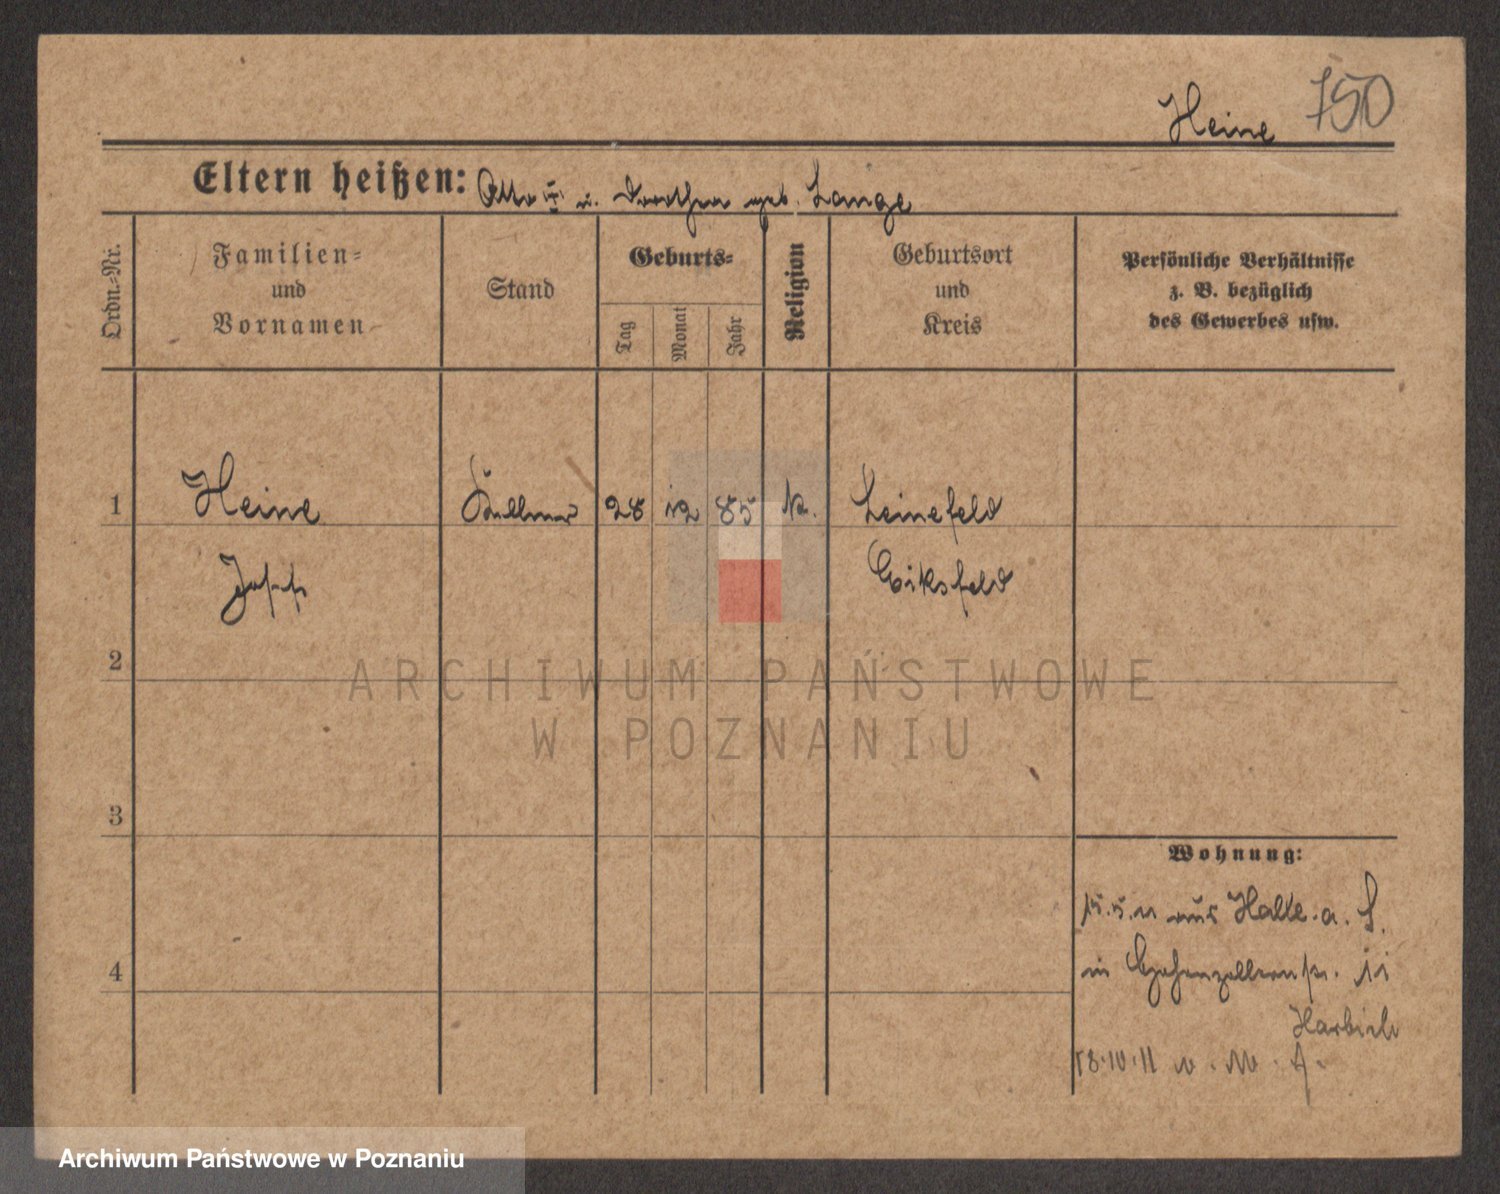 Heine 750
Eltern heißen: Otto u. Dorothea geb. Lange
Ordn.-Nr.
Familien-
und
Vornamen
Stand
Geburts-
Tag
Monat
Jahr
Religion
Geburtsort
und
Kreis
Persönliche Verhältnisse
z. B. bezüglich
des Gewerbes usw.
1 Heine Kellner 28 12 85 k. Leinefeld
Josef Eiksfeld
2
3
4
Wohnung:
15.5.11 aus Halle a. S.
in Hohenzollernstr. 11
Harbich
18.10.11 n. M.
ARCHIWUM PAŃSTWOWE
W POZNANIU
Archiwum Państwowe w Poznaniu